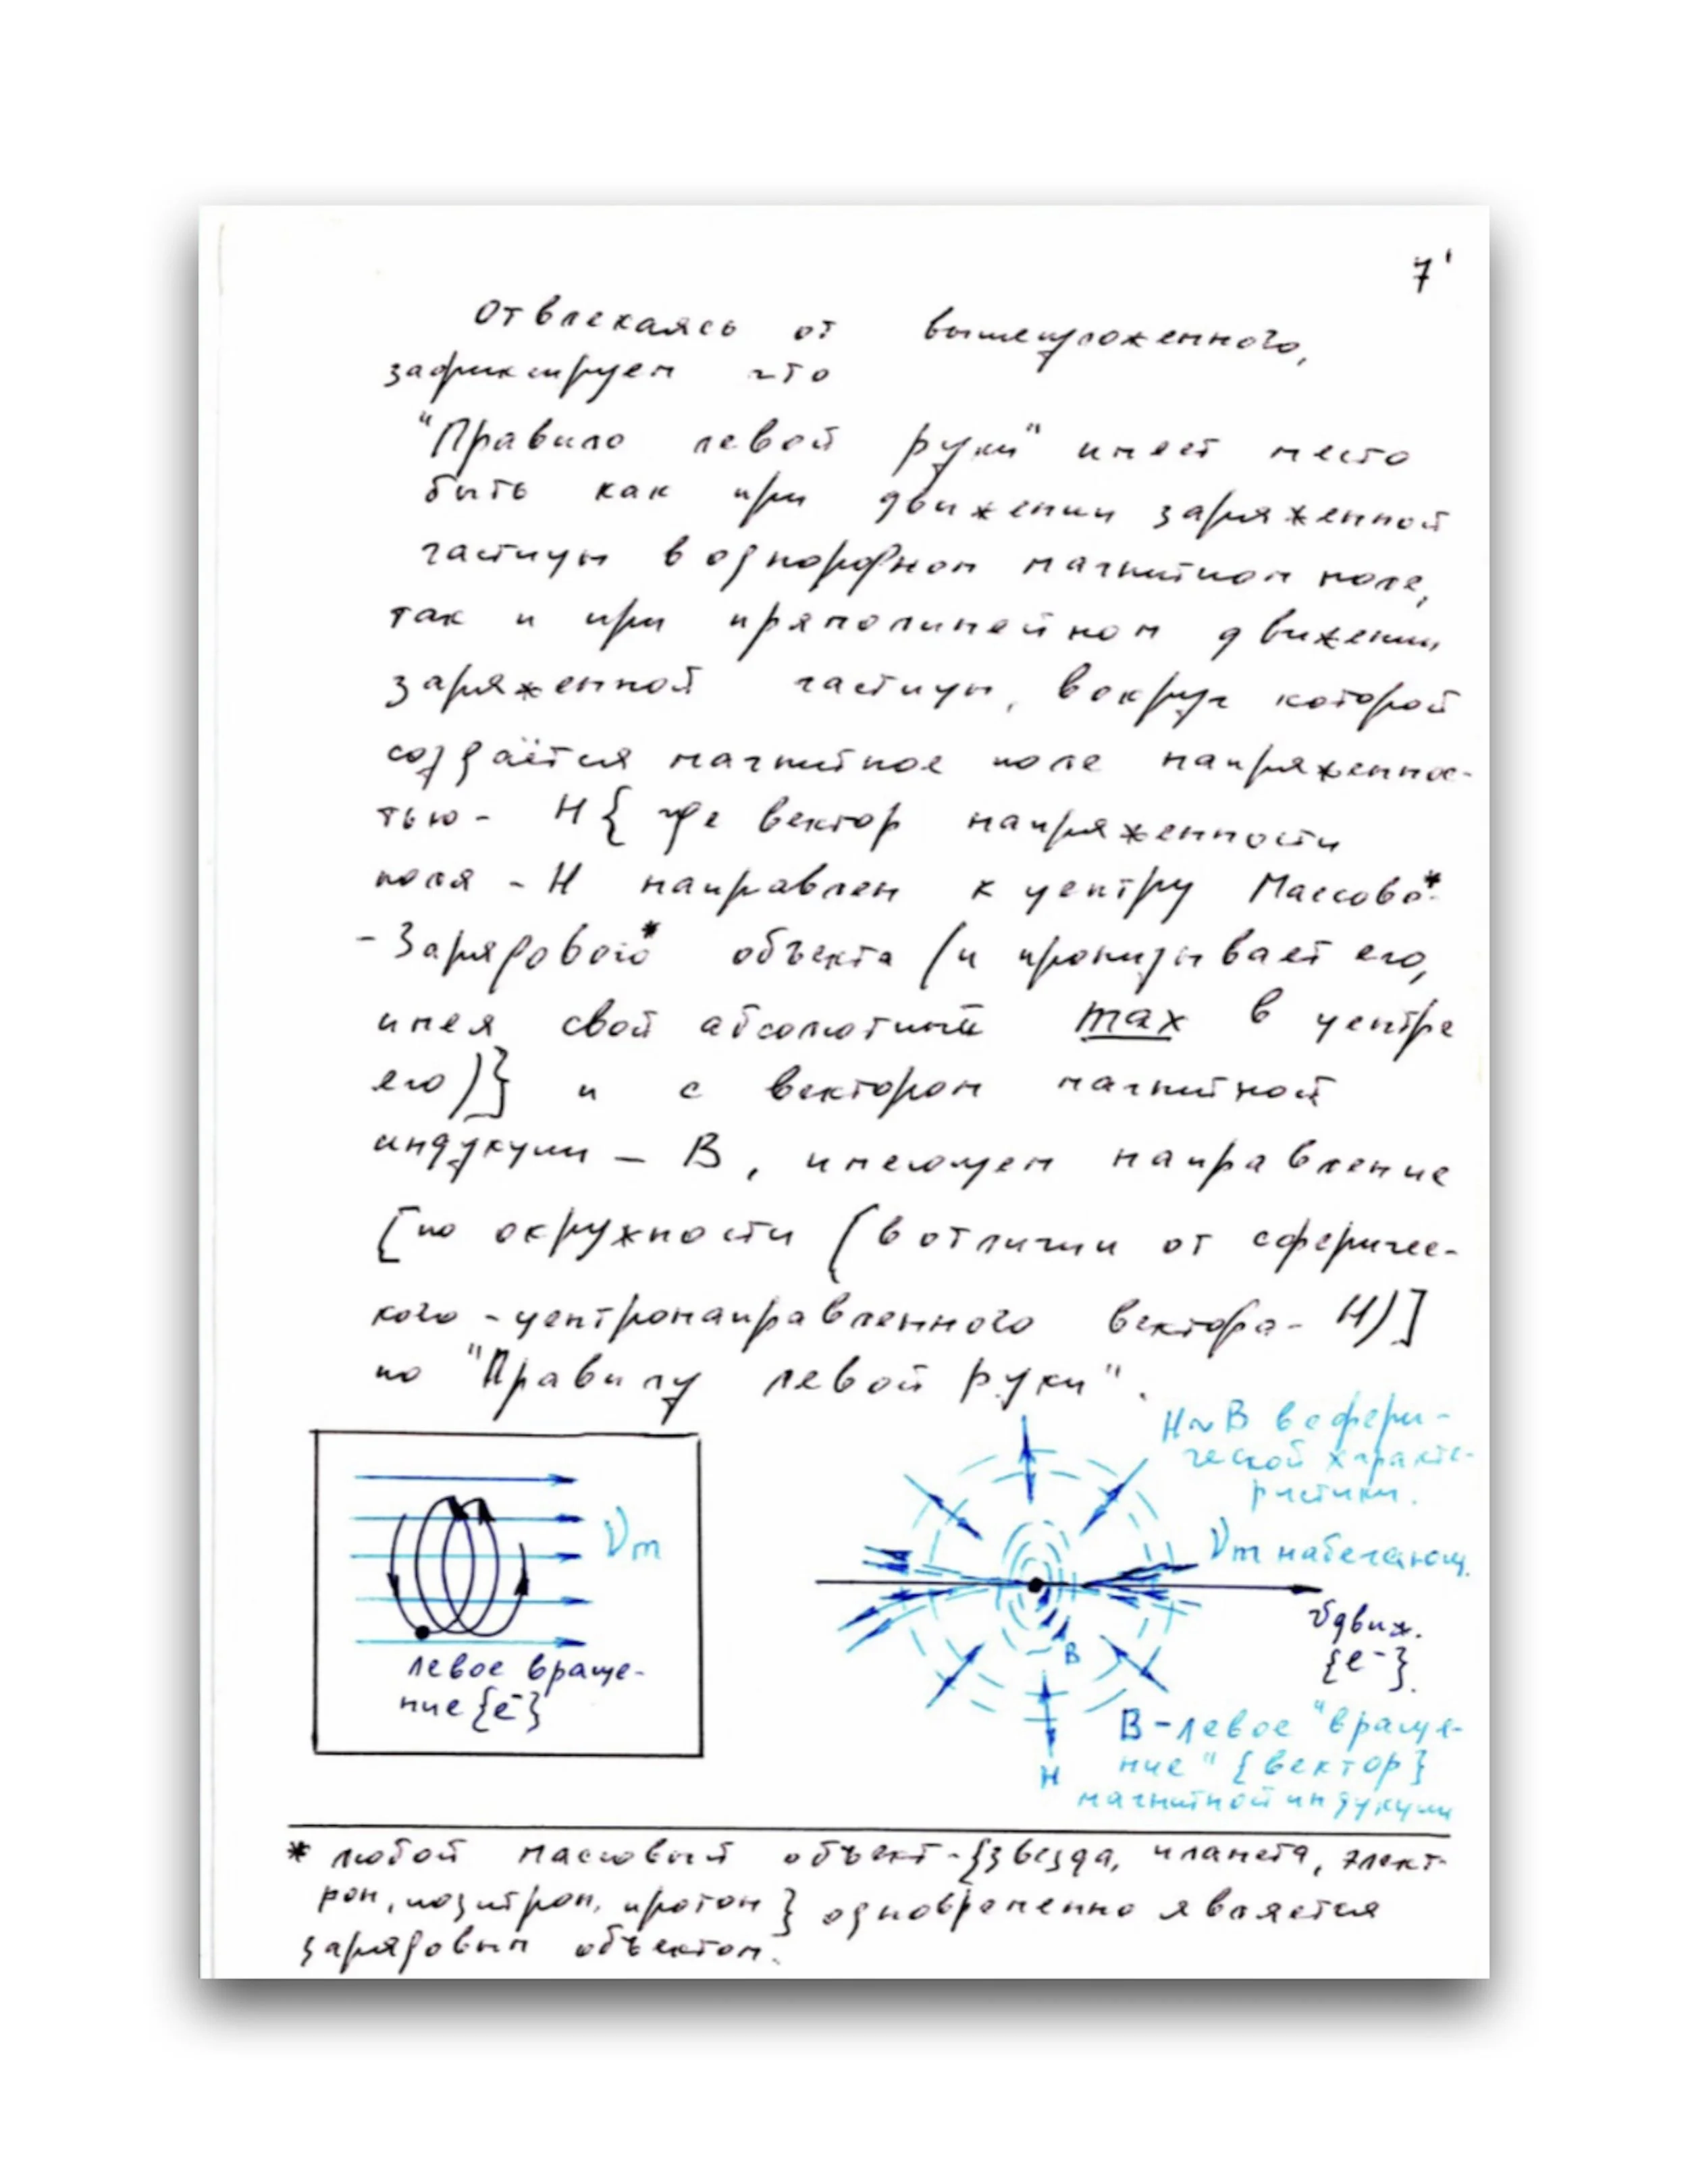 7'
Отвлекаясь от вышеизложенного,
зафиксируем что
"Правило левой руки" имеет место
быть как при движении заряженной
частицы в однородном магнитном поле,
так и при прямолинейном движении
заряженной частицы, вокруг которой
создаётся магнитное поле напряженнос-
тью - H { где вектор напряженности
поля - H направлен к центру Массово*-
- Зарядового* объекта (и пронизывает его,
имея свой абсолютный max в центре
его)} и с вектором магнитной
индукции - B, имеющем направление
[по окружности (в отличии от сферичес-
кого - центронаправленного вектора - H)]
по "Правилу левой руки".
H~B в сфери-
ческой характе-
ристики.
νm
νm набегающ.
vдвиж.
{e-}.
левое враще-
ние {e-}
B
H
B - левое "враще-
ние" {вектор}
магнитной индукции
* любой массовый объект - {звезда, планета, элект-
рон, позитрон, протон} одновременно является
зарядовым объектом.